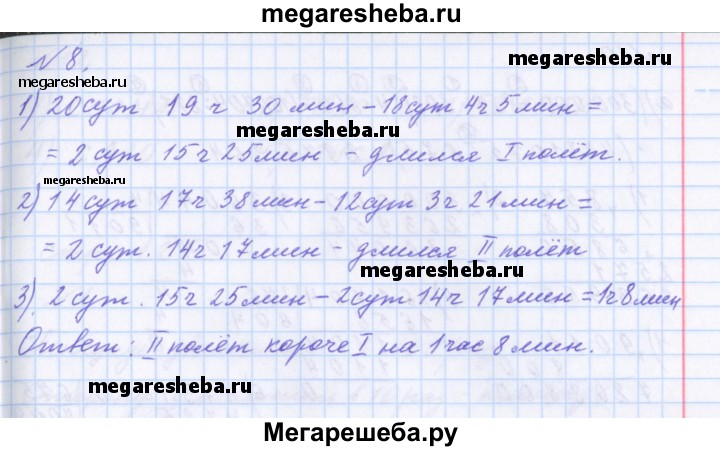 megaresheba.ru
№8.
megaresheba.ru
1) 20 сут 19 ч 30 мин – 18 сут 4 ч 5 мин =
megaresheba.ru
= 2 сут 15 ч 25 мин – длился I полёт.
megaresheba.ru
2) 14 сут 17 ч 38 мин – 12 сут 3 ч 21 мин =
= 2 сут. 14 ч 17 мин – длился II полёт
megaresheba.ru
3) 2 сут. 15 ч 25 мин – 2 сут 14 ч 17 мин = 1 ч 8 мин
Ответ: II полёт короче I на 1 час 8 мин.
megaresheba.ru
Мегарешеба.ру